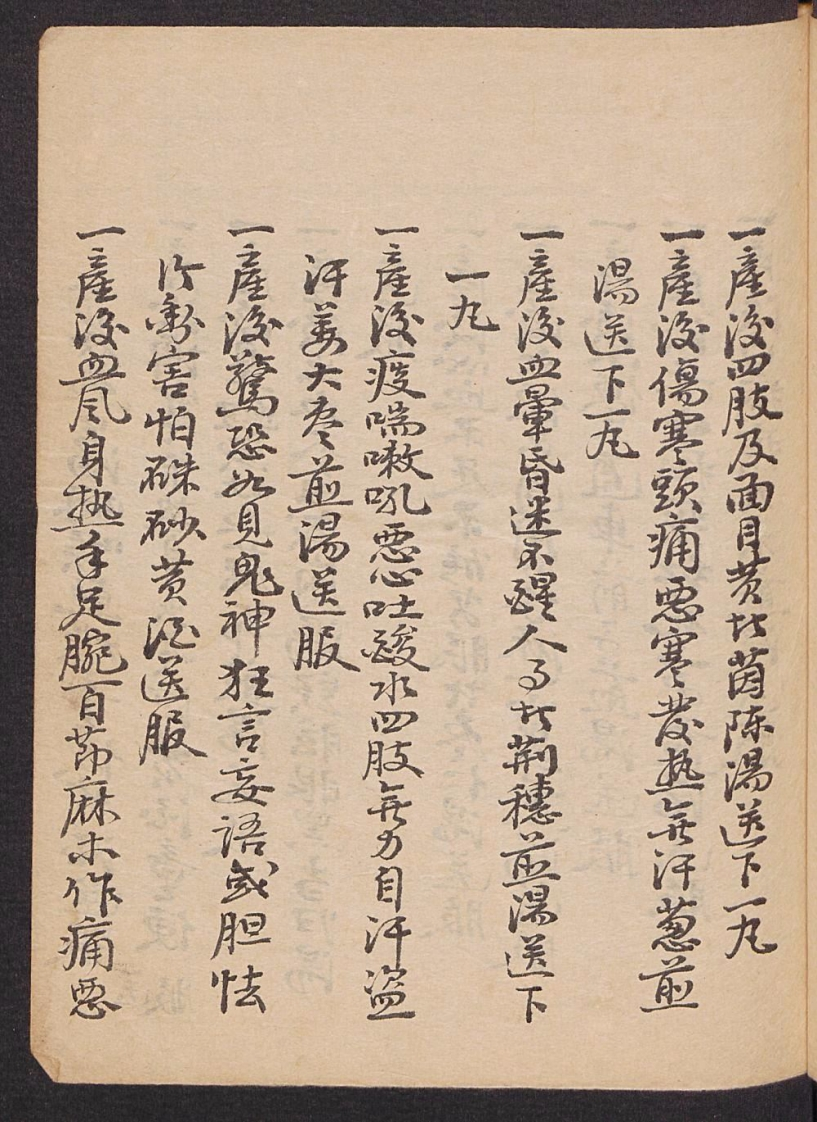 一產後四肢及面目黄水茵陈湯送下一丸
一產後傷寒頭痛惡寒發热無汗葱煎
湯送下一丸
一產後血暈昏迷不醒人事水荆穗煎湯送下
一丸
一產後痰喘嗽吼惡心吐酸水四肢無力自汗盗
汗姜大枣煎湯送服
一產後驚恐如見鬼神狂言妄語或胆怯
害怕硃砂黄酒送服
一產後血風身热手足腕百節麻木作痛惡